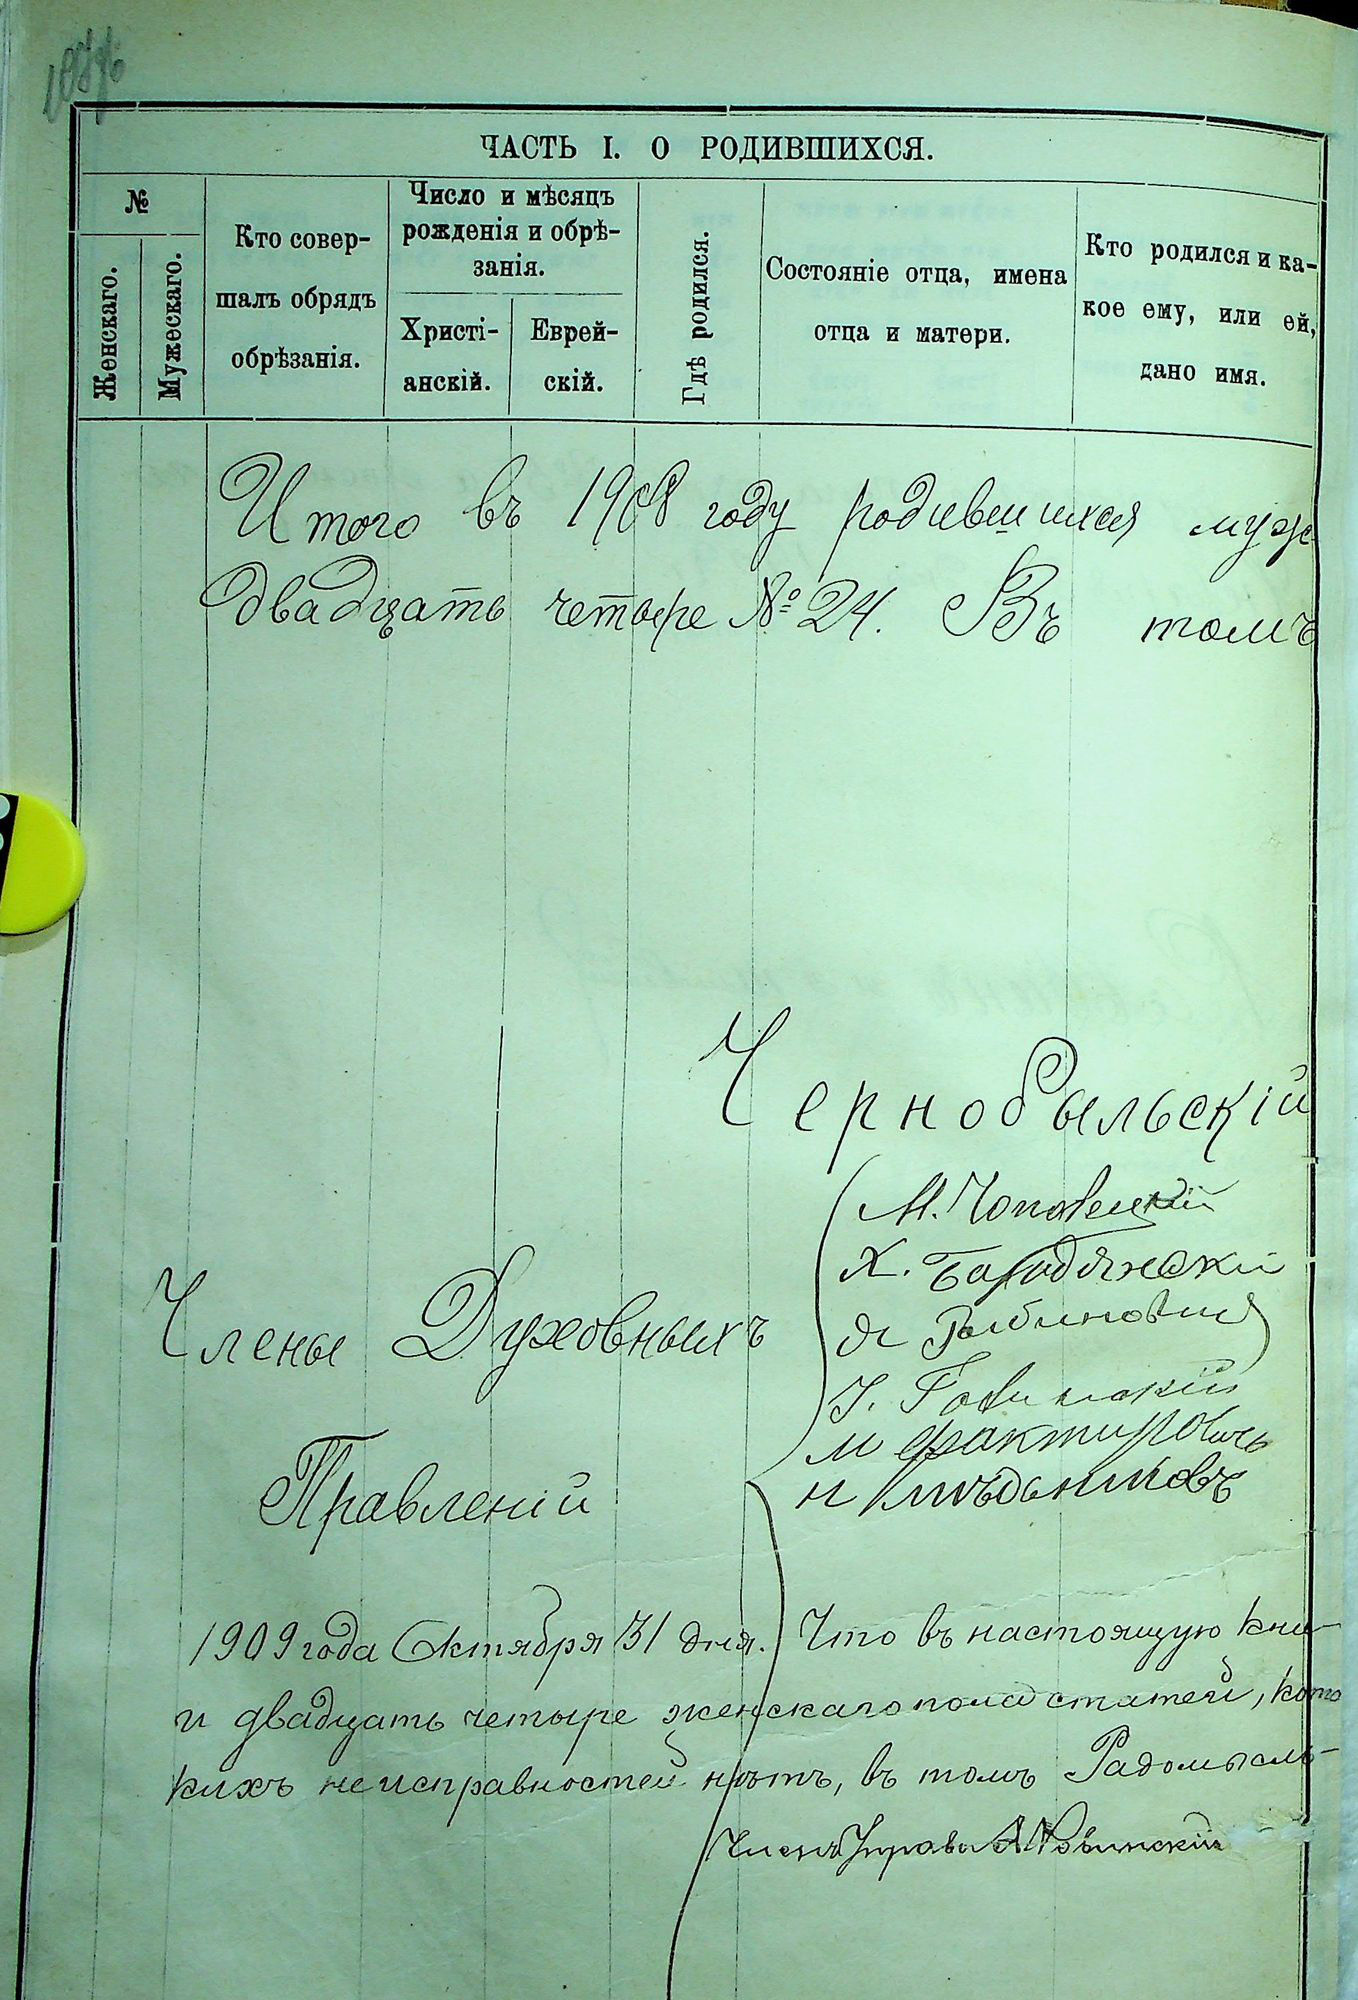 ЧАСТЬ I. О РОДИВШИХСЯ.
№
Женскаго.
Мужескаго.
Кто совер-
шалъ обрядъ
обрѣзанія.
Число и мѣсяцъ
рожденія и обрѣ-
занія.
Христі-
анскій.
Еврей-
скій.
Гдѣ родился.
Состояніе отца, имена
отца и матери.
Кто родился и ка-
кое ему, или ей,
дано имя.
Итого въ 1908 году родившихся муж
двадцать четыре № 24. Въ томъ
Чернобыльскій
М. Чоповецкій
Х. Бародянскій
Члены Духовныхъ
Правленій
1909 года Октября 31 дня. Что въ настоящую кни-
и двадцать четыре женскаго пола статей, кото
кихъ неисправностей нѣтъ, въ томъ Радомысль-
Членъ Управы